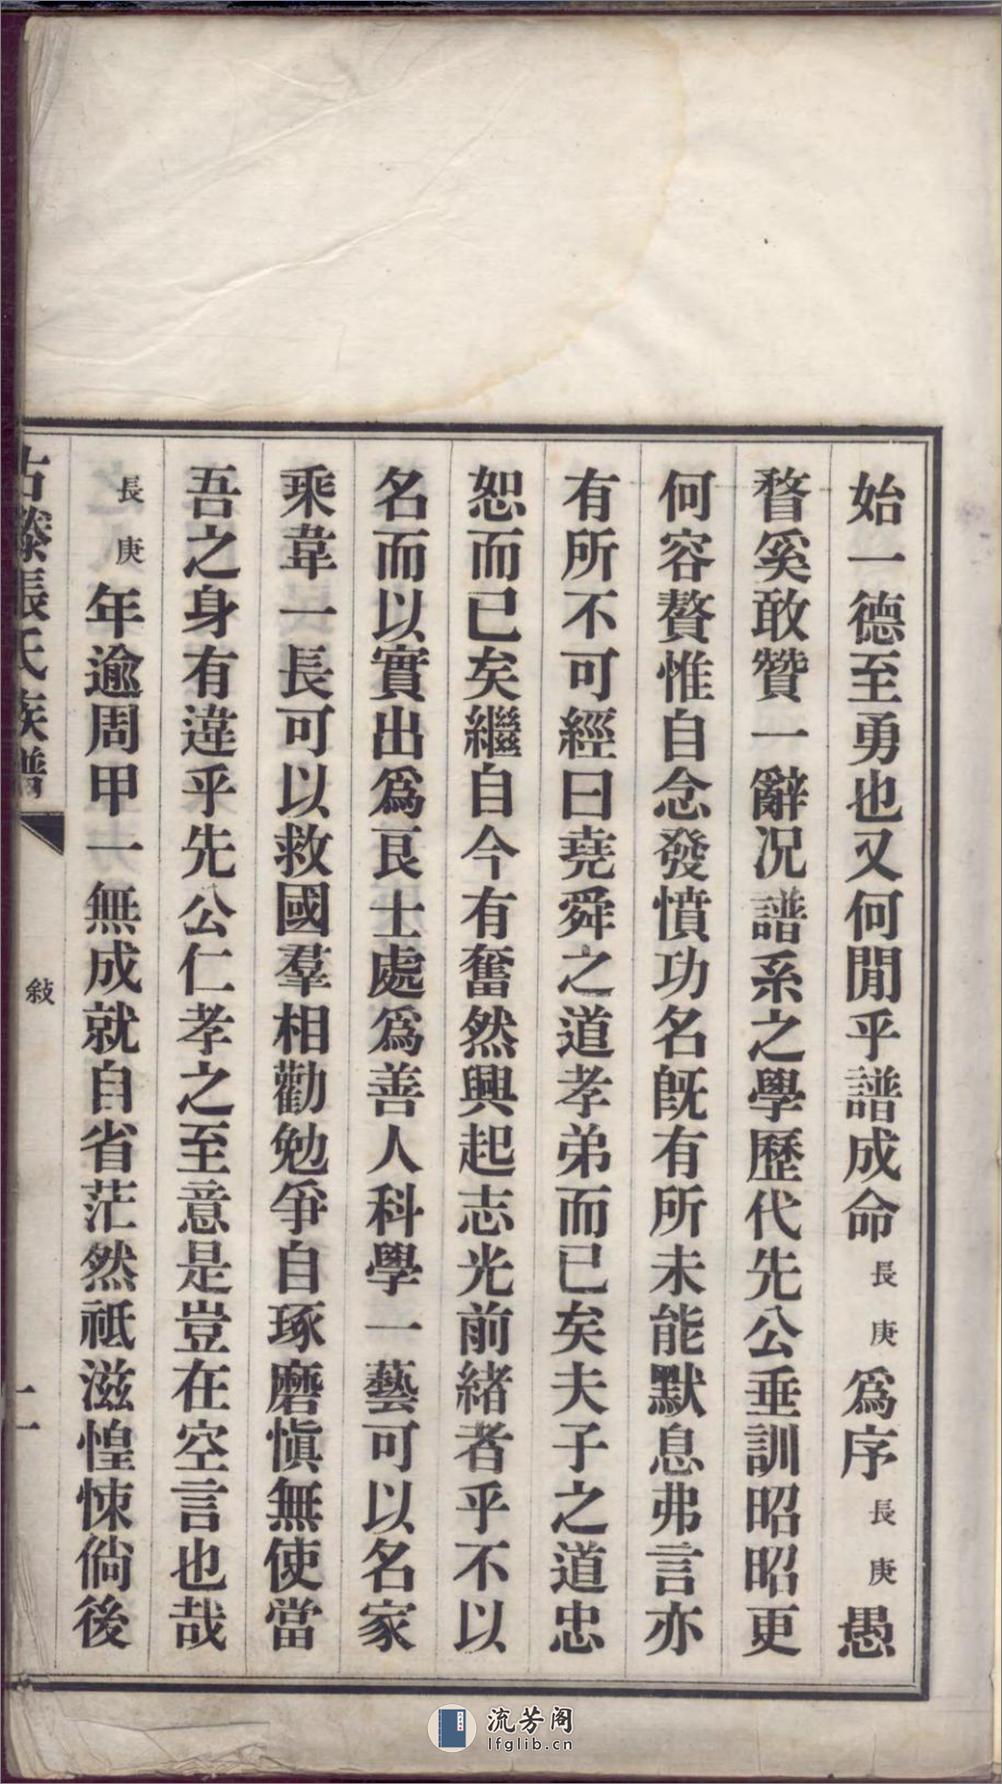 始一德至勇也又何閒乎譜成命長庚爲序長庚愚
瞀奚敢贊一辭況譜系之學歷代先公垂訓昭昭更
何容贅惟自念發憤功名旣有所未能默息弗言亦
有所不可經曰堯舜之道孝弟而已矣夫子之道忠
恕而已矣繼自今有奮然興起志光前緒者乎不以
名而以實出爲良士處爲善人科學一藝可以名家
乘韋一長可以救國羣相勸勉爭自琢磨愼無使當
吾之身有違乎先公仁孝之至意是豈在空言也哉
長庚年逾周甲一無成就自省茫然祗滋惶悚倘後
古滕張氏族譜
敍
十一
流芳阁
lfglib.cn